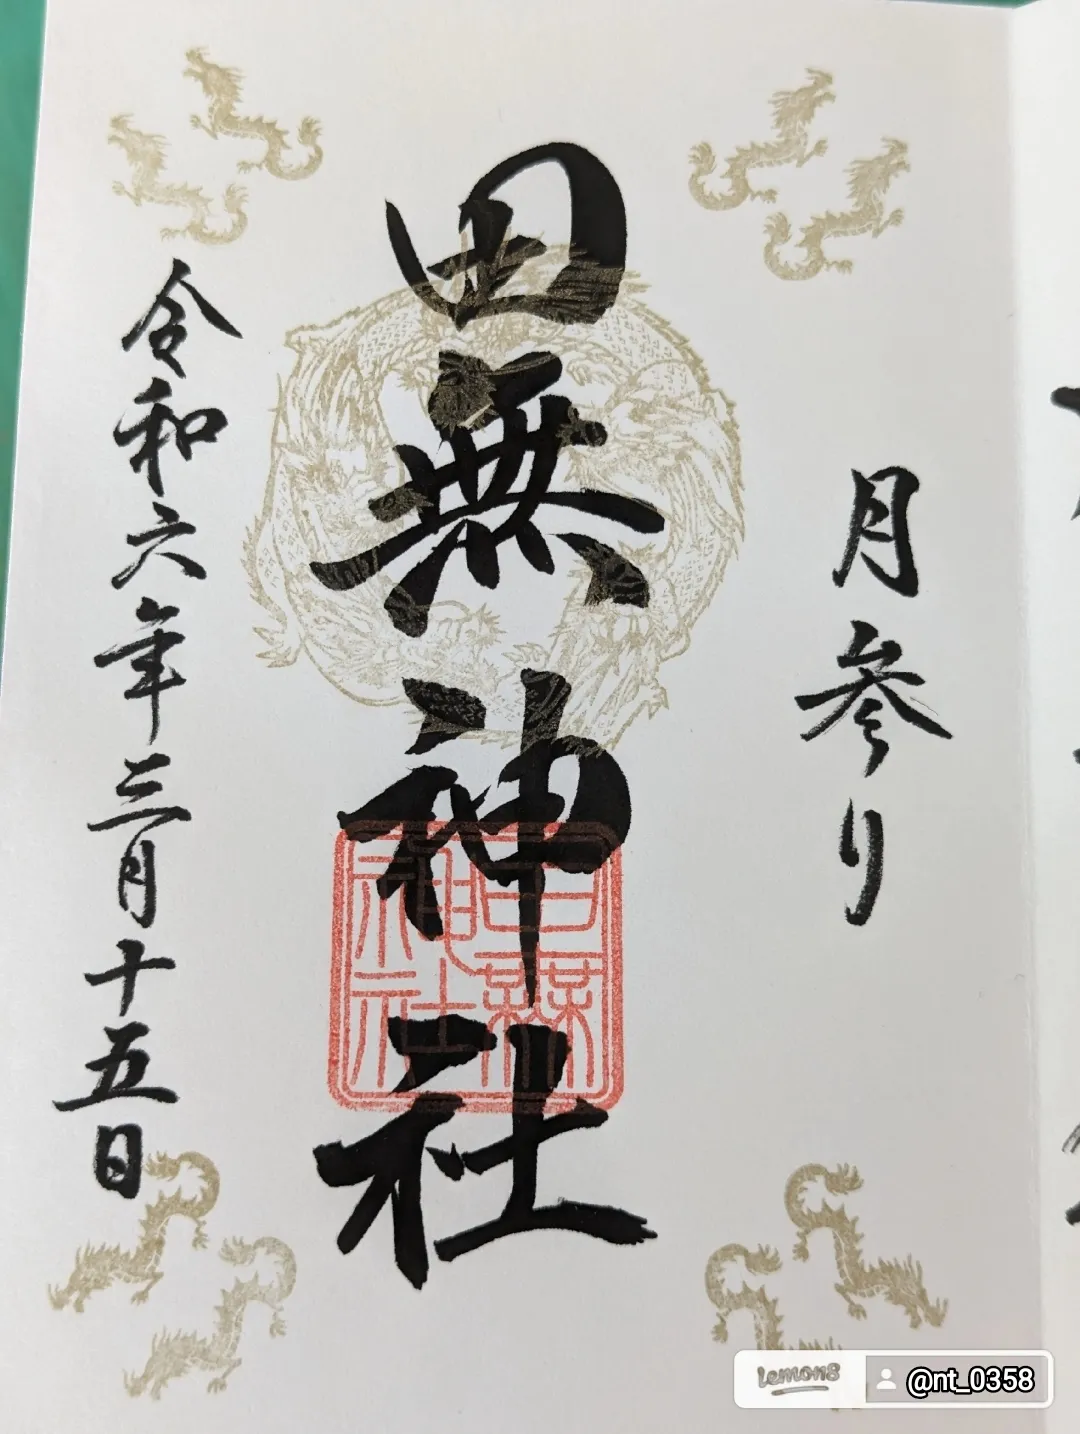 月参り
田無神社
田無神社
令和六年三月十五日
lemon8
@nt_0358